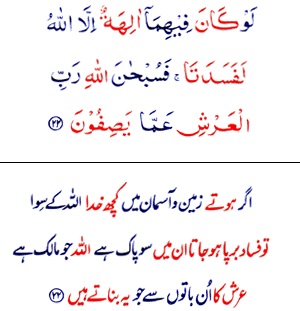 لَوْ كَانَ فِيْهِمَاۤ اٰلِهَةٌ اِلَّا اللّٰهُ
لَفَسَدَتَا ۚ فَسُبْحٰنَ اللّٰهِ رَبِّ
الْعَرْشِ عَمَّا يَصِفُوْنَ ۲۲
اگر ہوتے زمین و آسمان میں کچھ خدا اللہ کے سِوا
تو فساد برپا ہوجاتا ان میں سو پاک ہے اللہ جو مالک ہے
عرش کا اُن باتوں سے جو یہ بناتے ہیں ۲۲